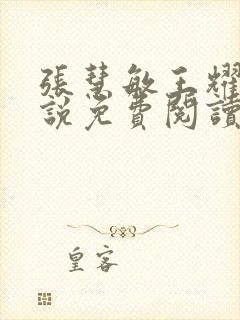 張慧敏王耀
說免費閱讀
皇客